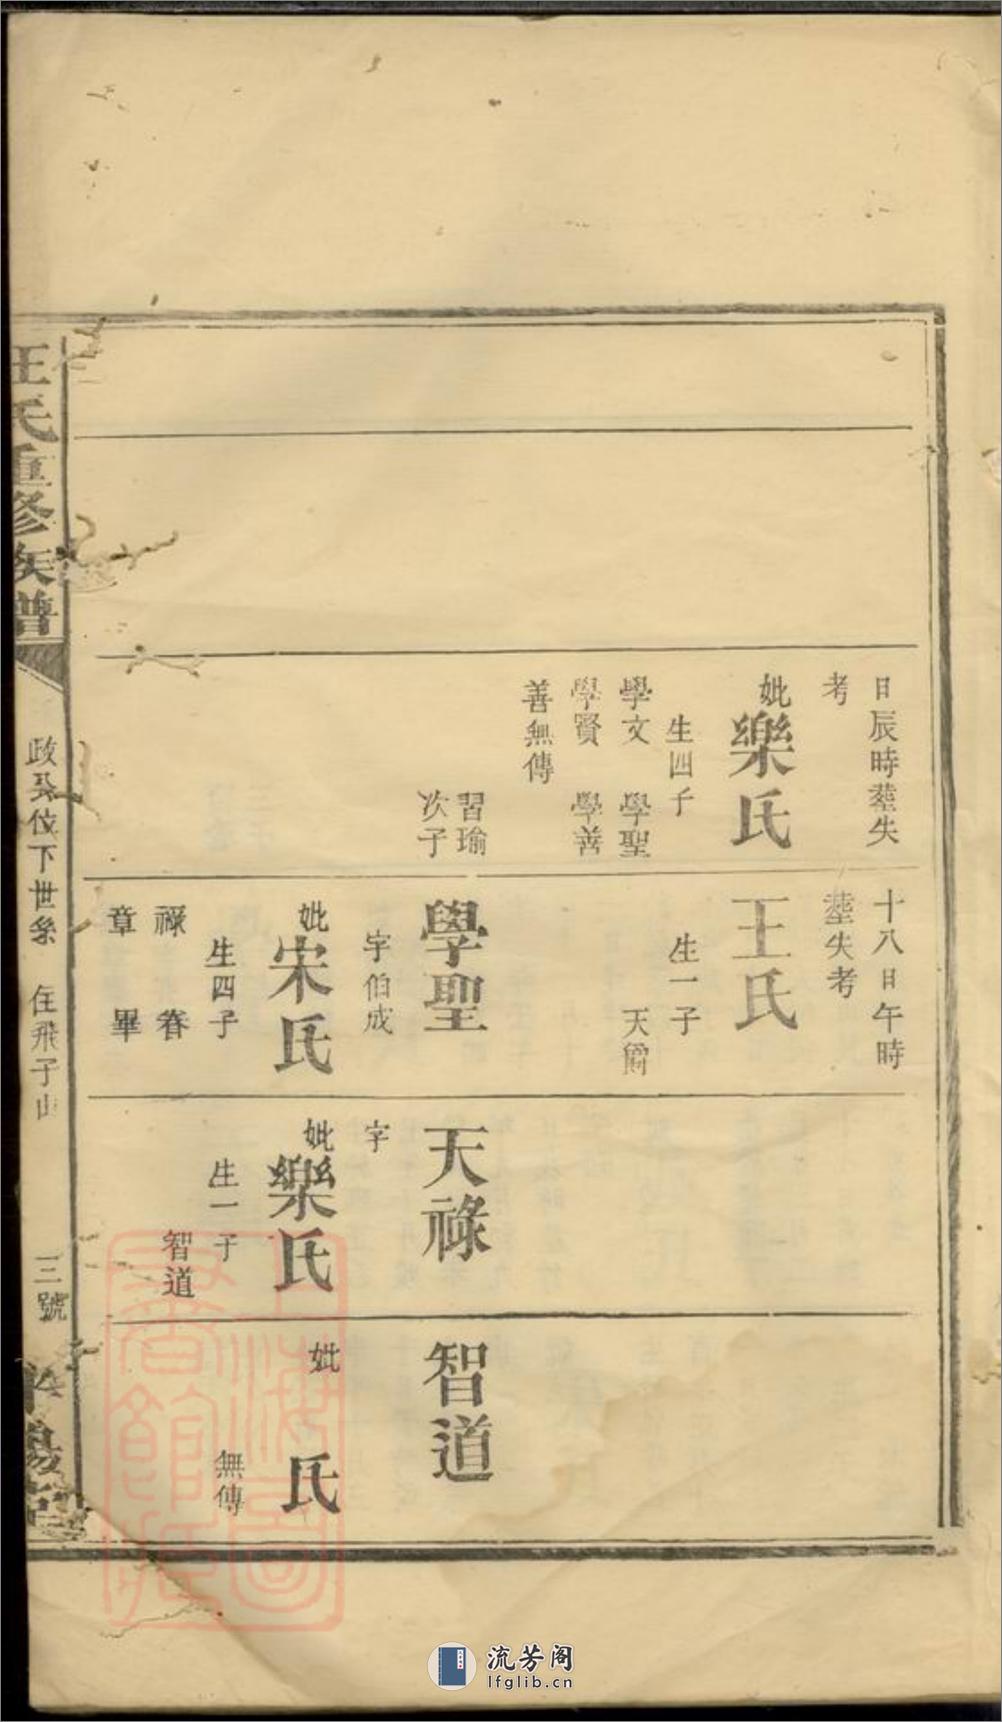 日辰時塟失
考
妣樂氏
生四子
學文 學聖
學賢 學善
善無傳
習瑜
次子
十八日午時
塟失考
王氏
生一子
天爵
學聖
字伯成
妣宋氏
生四子
祿 眷
章 畢
天祿
字
妣樂氏
生一子
智道
智道
妣 氏
無傳
汪氏重修族譜
政公位下世系 住飛子山
三號
上海圖書館藏
流芳阁
lfglib.cn